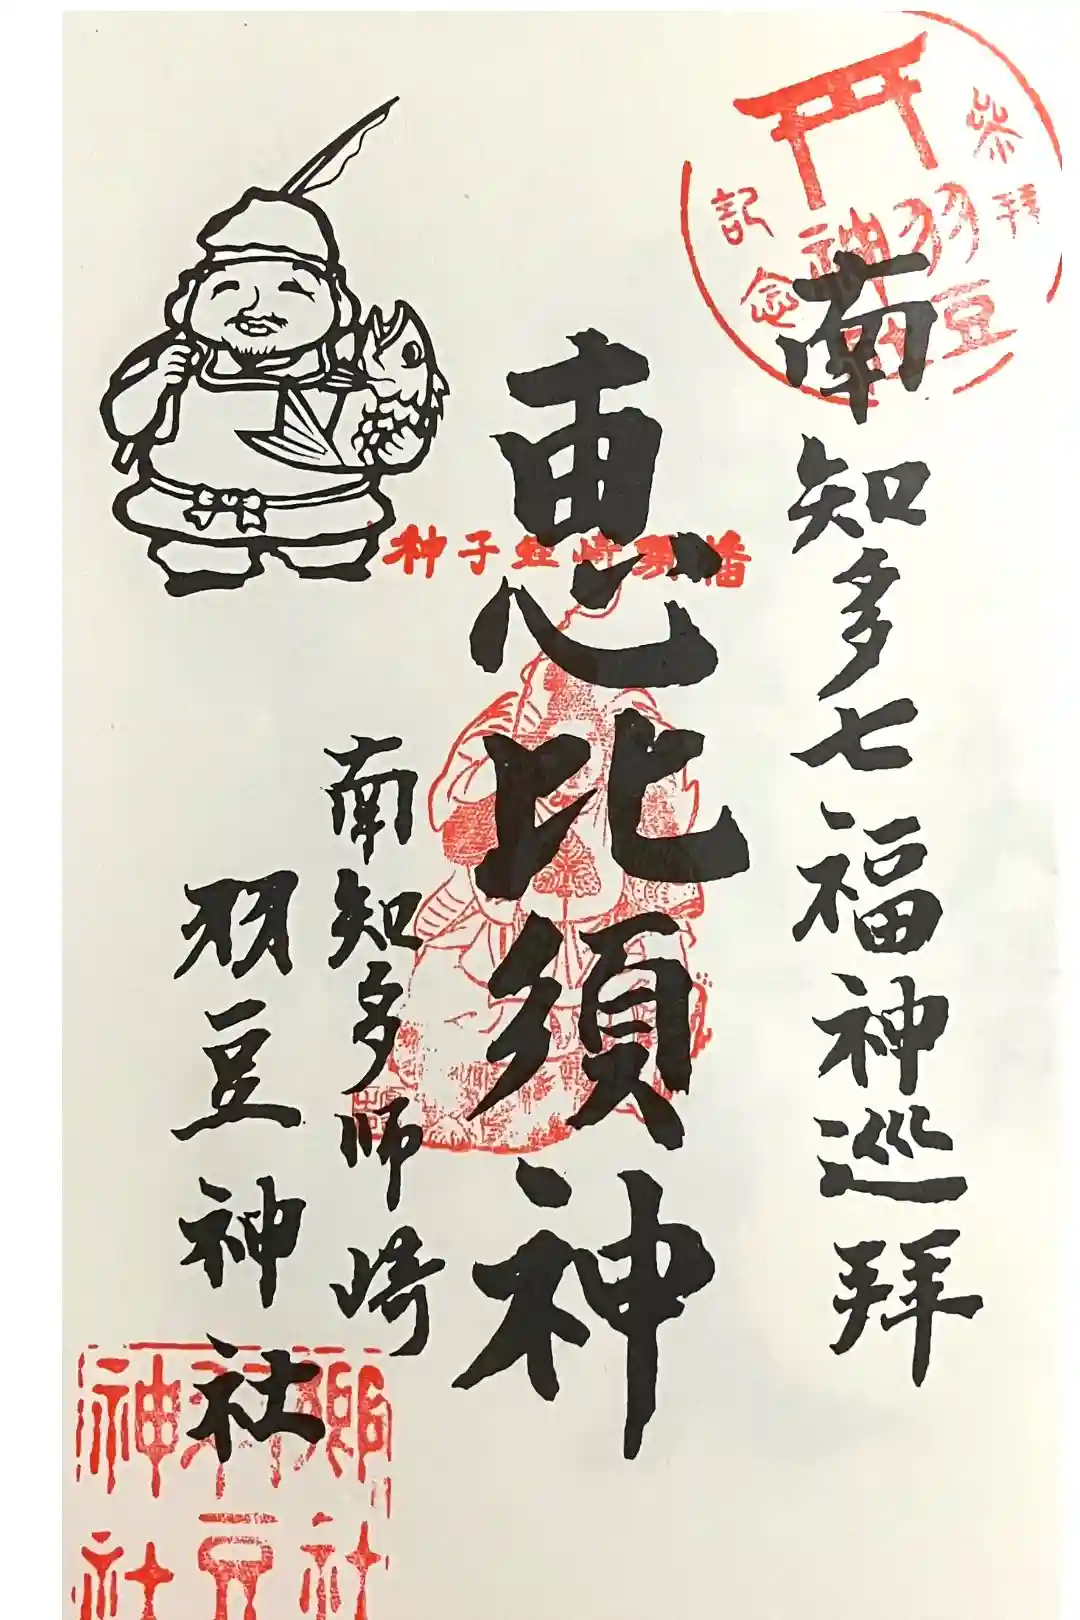 参拝
記念
羽豆
神社
南知多七福神巡拝
恵比須神
南知多師崎
羽豆神社
郷社
羽豆
神社